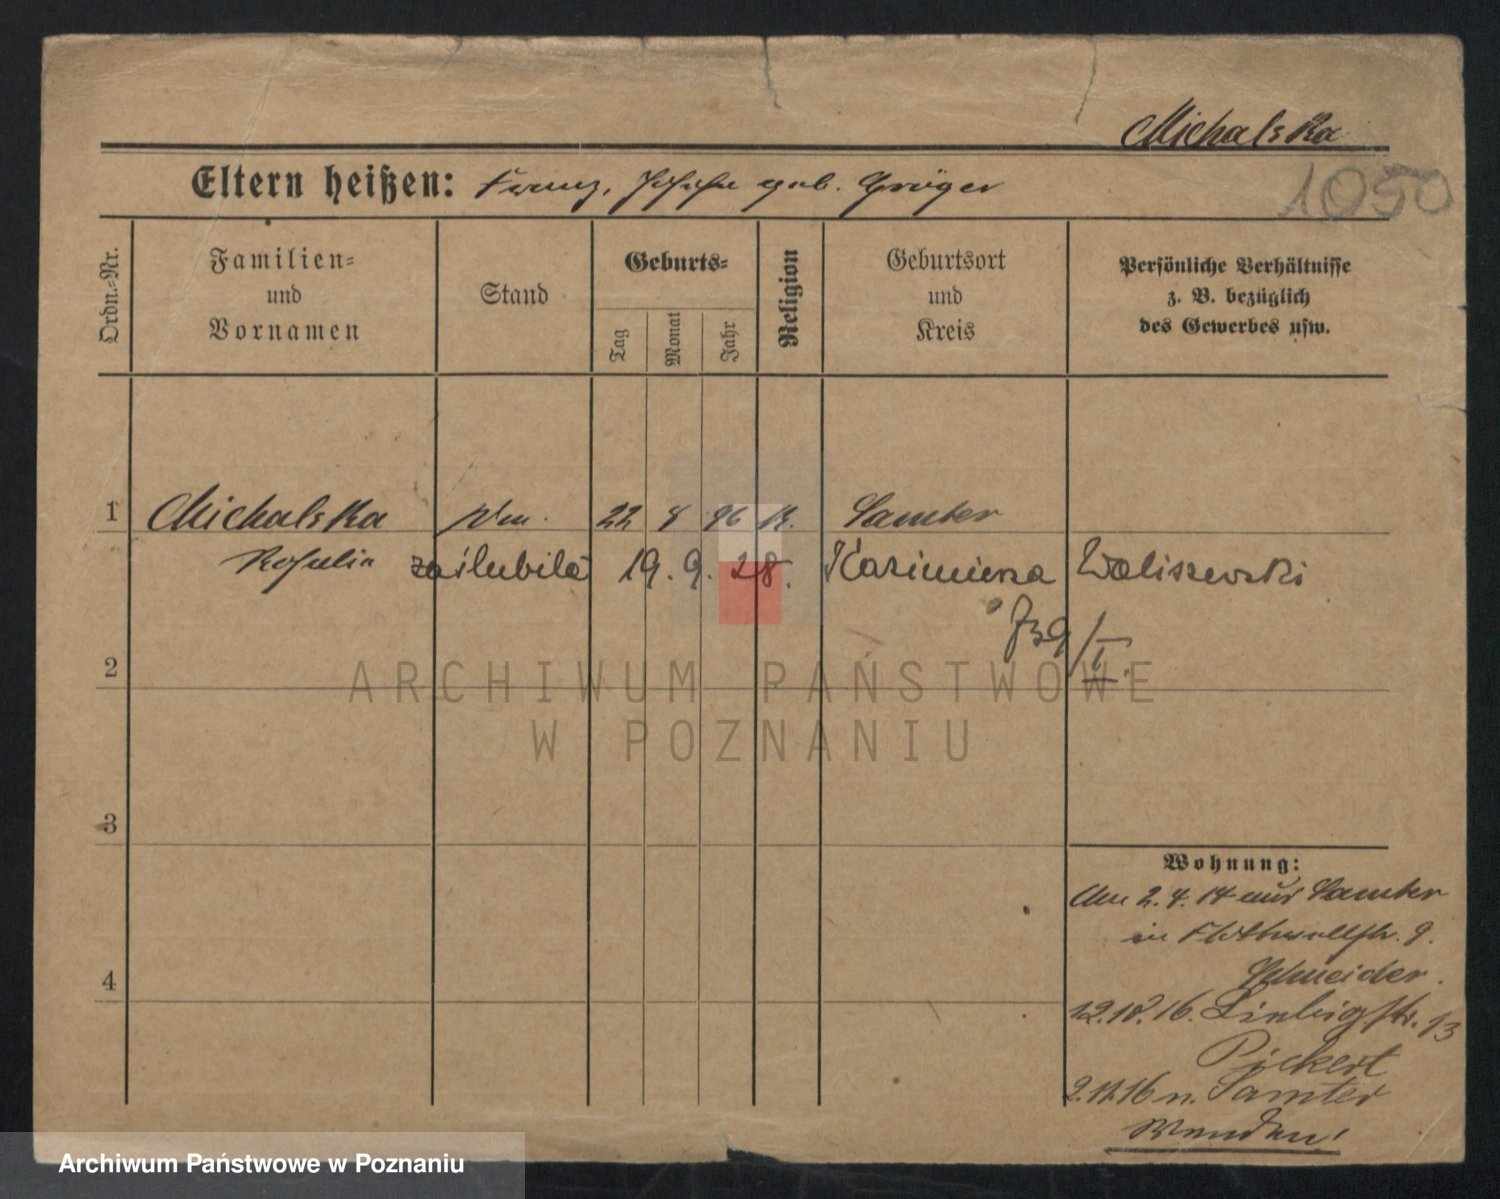 Michalska
Eltern heißen: Franz, geb. Gröger
1050
Ordn.-Nr.
Familien-
und
Vornamen
Stand
Geburts-
Tag
Monat
Jahr
Religion
Geburtsort
und
Kreis
Persönliche Verhältnisse
z. B. bezüglich
des Gewerbes usw.
1 Michalska 22 8 96 K. Samter
Rosalie zaślubiła 19.9.28. Kazimierza Waliszewski
2
ARCHIWUM PAŃSTWOWE
W POZNANIU
3
Wohnung:
Am 2.4.14 aus Samter
in Flottwellstr. 9.
Schneider.
4
12.10.16. Liebigstr. 13
Pickert
2.11.16 n. Samter
Wenden!
Archiwum Państwowe w Poznaniu